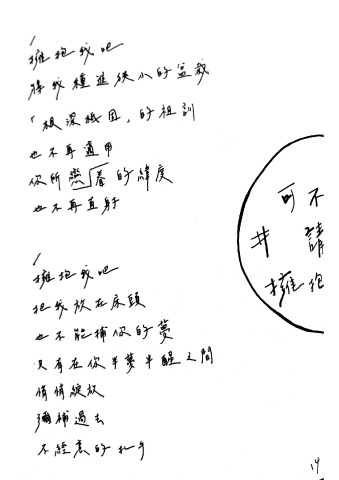 /
擁抱我吧
將我種進狹小的盆栽
「根深柢固」的祖訓
也不再適用
你所戀眷的緯度
也不再直射
/
擁抱我吧
把我放在床頭
也不能捕你的夢
只有在你半夢半醒之間
悄悄綻放
彌補過去
不經意的扎手
可不
#請
擁抱
14